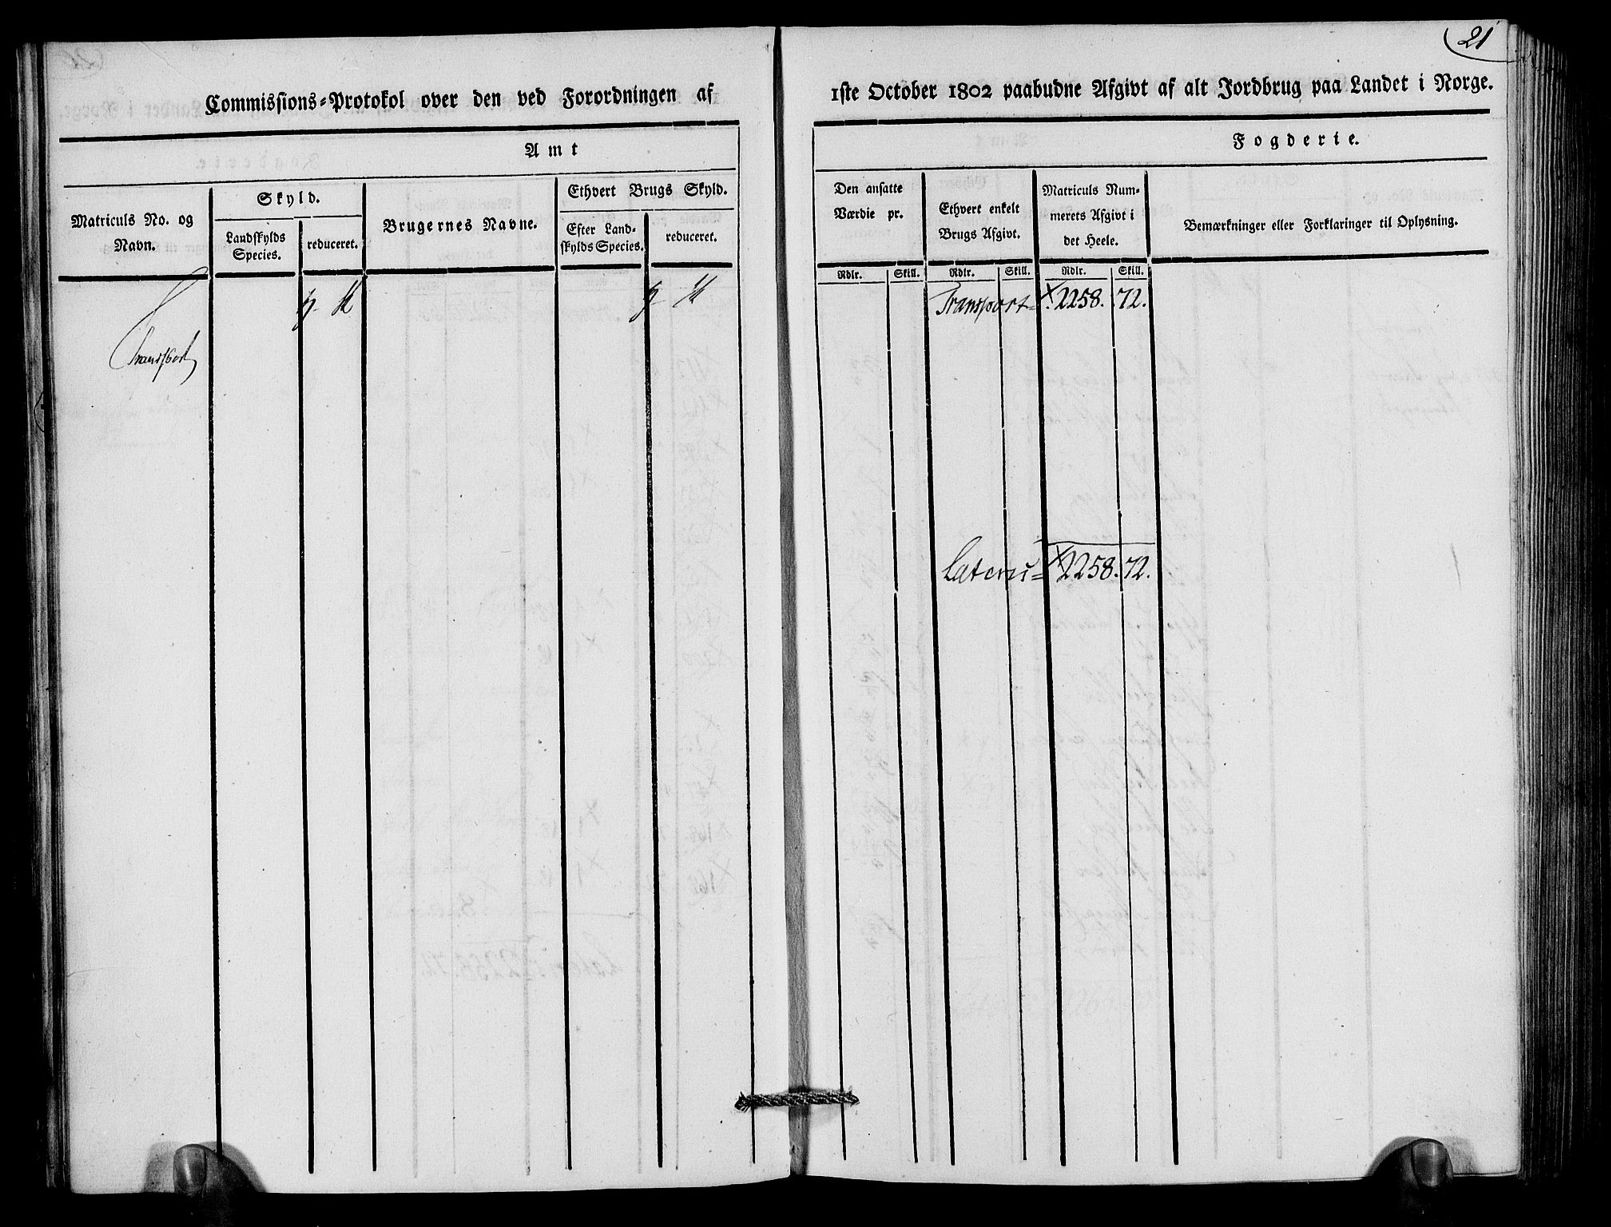 21
Commissions=Protokol over den ved Forordningen af
1ste October 1802 paabudne Afgivt af alt Jordbrug paa Landet i Norge.
Amt
Fogderie.
Matriculs No. og Navn.
Skyld.
Landskylds Species.
reduceret.
Brugernes Navne.
Ethvert Brugs Skyld.
Efter Land-
skylds Species.
reduceret.
Den ansatte
Værdie pr.
Ethvert enkelt
Brugs Afgivt.
Matriculs Num-
merets Afgivt i
det Heele.
Bemærkninger eller Forklaringer til Oplysning.
Rdlr. Skill. Rdlr. Skill. Rdlr. Skill.
Transport
Transport 2258. 72.
Lateris 2258. 72.